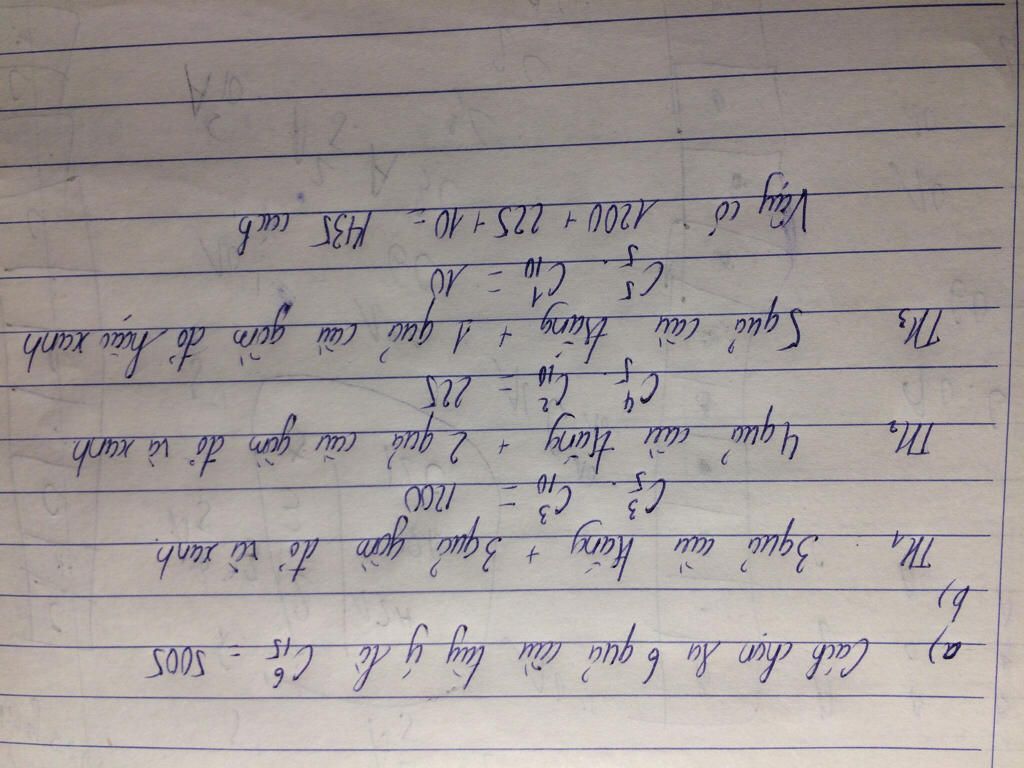 a) Cách chọn ra 6 quả cầu tùy ý là C⁶₁₅ = 5005
b)
TH₁ 3 quả cầu trắng + 3 quả gồm đỏ và xanh.
C³₅ . C³₁₀ = 1200
TH₂ 4 quả cầu trắng + 2 quả cầu gồm đỏ và xanh.
C⁴₅ . C²₁₀ = 225
TH₃ 5 quả cầu trắng + 1 quả cầu gồm đỏ hoặc xanh
C⁵₅ . C¹₁₀ = 10
Vậy có 1200 + 225 + 10 = 1435 cách